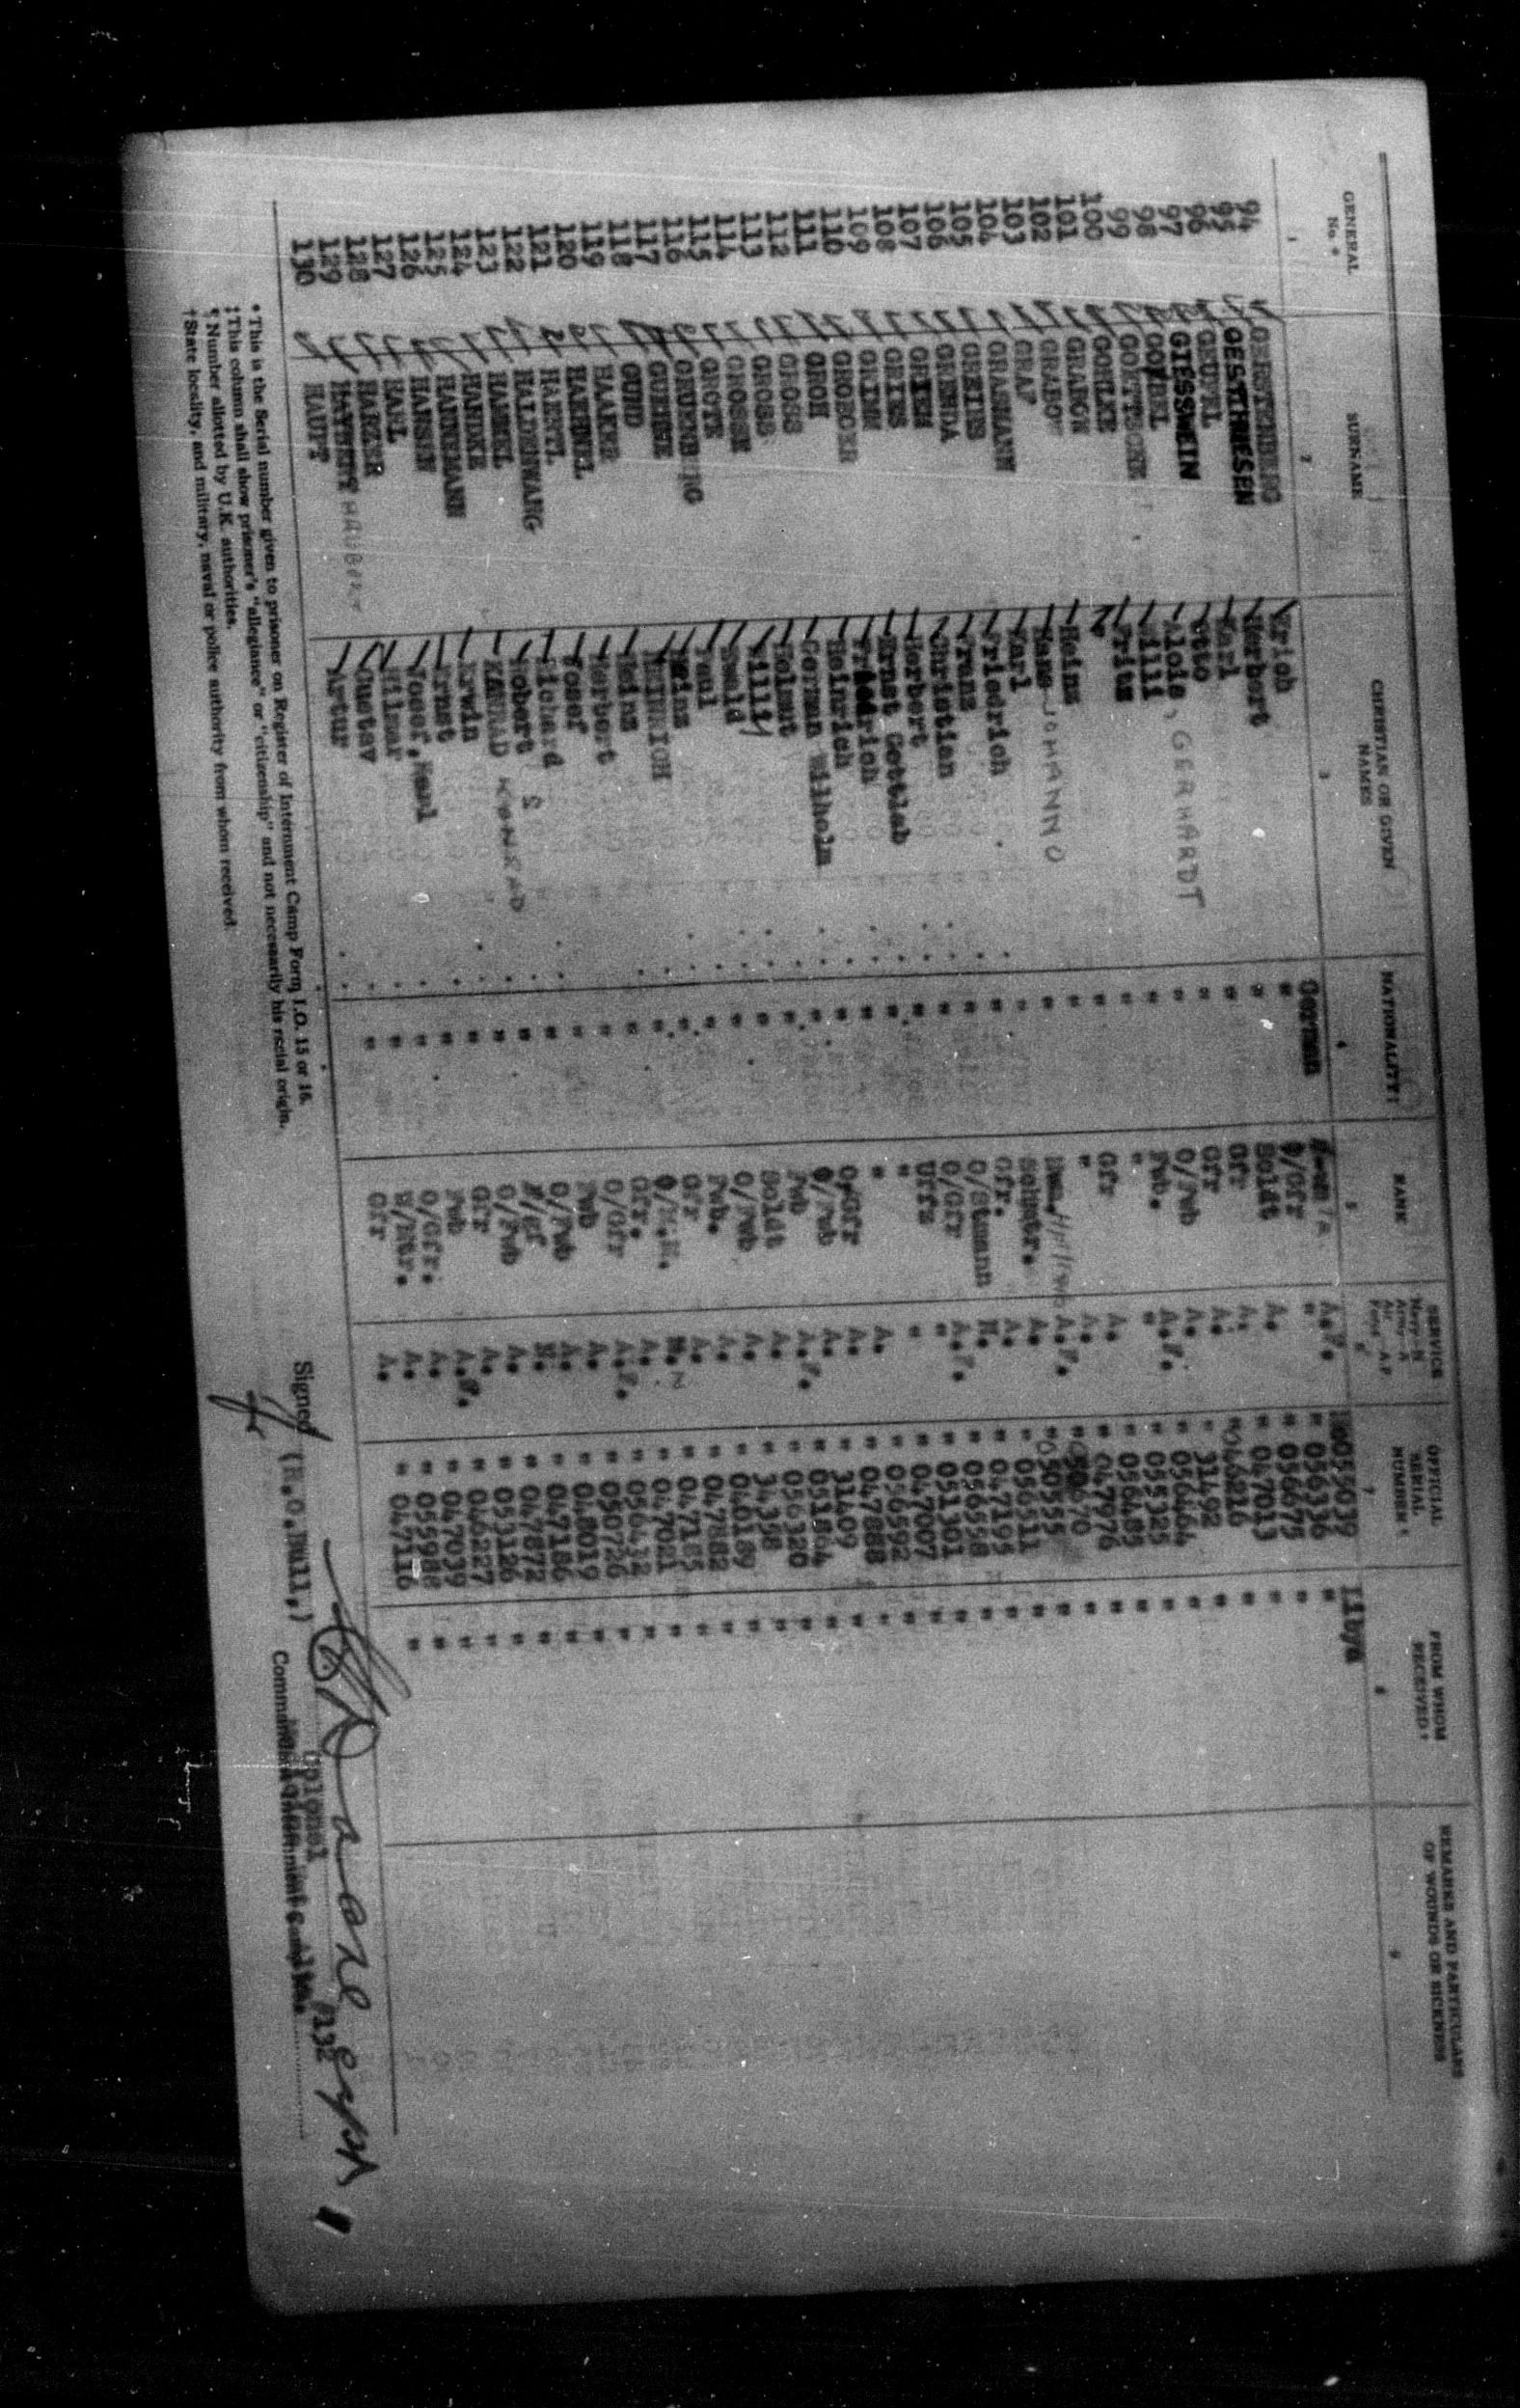 GENERAL No * SURNAME CHRISTIAN OR GIVEN NAMES NATIONALITY‡ RANK SERVICE Navy-N Army-A Air Force AF OFFICIAL SERIAL NUMBER ¶ FROM WHOM RECEIVED† REMARKS AND PARTICULARS OF WOUNDS OR SICKNESS
1 2 3 4 5 6 7 8 9
94 GERSTENBERG Erich German A.F. 055039 Libya
95 GESTHNESEN Herbert " O/Gfr " " 056336 "
96 GEUPEL Karl " Soldt A. " 056675 "
97 GIESSWEIN Otto " Gfr A. " 047013 "
98 GOEBEL Alois, GERHARDT " Gfr A. " 046216 "
99 GOETTSCHE Willi " O/Fwb A. " 31492 "
100 GOHLKE Fritz " Fwb. A.F. " 056464 "
101 " " " " 055325 "
102 GRABOW Heinz " Gfr A. " 056485 "
103 GRAF Hans JOHANNO " " A. " 047976 "
104 GRASMANN Karl " A.F. " 050670 "
105 GREIBS Friedrich " Schmtr. A. " 050555 "
106 GRENDA Franz " Gfr. A. " 056511 "
107 Christian " O/Stmann N. " 047195 "
108 GRIES Herbert " O/Gfr A.F. " 056558 "
109 GRIMM Ernst Gottlob " Uffz " " 051301 "
110 GROEGER Friedrich " " " " 047007 "
111 GROH Heinrich " " A. " 056592 "
112 GROSS German Wilhelm " O/Gfr A. " 047888 "
113 GROSS Helmut " O/Fwb A. " 31409 "
114 GROSSE Willi " Fwb A.F. " 051864 "
115 GROTE Ewald " Soldt A. " 056320 "
116 GRUENBERG Paul " O/Fwb A. " 34398 "
117 Heinz " Fwb. A. " 046189 "
118 GUHD HEINRICH " Gfr A. " 047882 "
119 HAAKER Heinz " N. " 047185 "
120 HAEHNEL Herbert " Gfr. A. " 047081 "
121 HAERTL Josef " O/Gfr A.F. " 056432 "
122 HALDENWANG Richard " Fwb A. " 050726 "
123 HAMMEL Robert " O/Fwb A. " 048019 "
124 HANDKE KANRAD KONRAD " N. " 047186 "
125 HANNEMANN Erwin " O/Fwb A. " 047872 "
126 HANSEN Ernst " Gfr A. " 053126 "
127 HARL Josef, Karl " Fwb A.F. " 046227 "
128 HARZER Hilmar " O/Gfr. A. " 047039 "
129 HAUBERT Gustav " A. " 055988 "
130 HAUPT Artur " Gfr A. " 047116 "
* This is the Serial number given to prisoner on Register of Internment Camp Form I.O. 15 or 16.
‡ This column shall show prisoner's "allegiance" or "citizenship" and not necessarily his racial origin.
¶ Number allotted by U.K. authorities.
† State locality, and military, naval or police authority from whom received.
Signed
(R.O.Bull,)
Colonel
Commandant Internment Camp
132